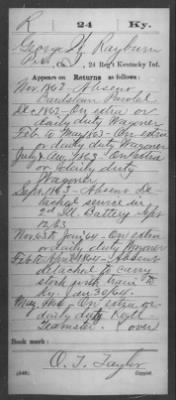 R 24 Ky.
George W. Rayburn
Pvt., Co. I, 24 Reg't Kentucky Inf.
Appears on Returns as follows:
Nov. 1862 - Absent
Bardstown
Dec 1862 - On extra or
daily duty Wagoner
Feb. to May 1863 - On extra
or daily duty Wagoner
July & Aug. 1863 - On extra
or daily duty
Wagoner
Sept. 1863 - Absent De
tached service in
2nd Ill. Battery Sept
12/63
Nov. 63 to Jan/64 - On extra
or daily duty Wagoner
Feb. to Apr. 1864 - Absent
detached to carry
stock with train to
Ky. Jan 30/64.
May 1864 - On extra or
daily duty Regtl
Teamster. over
Book mark:
O. T. Taylor
(546) Copyist.